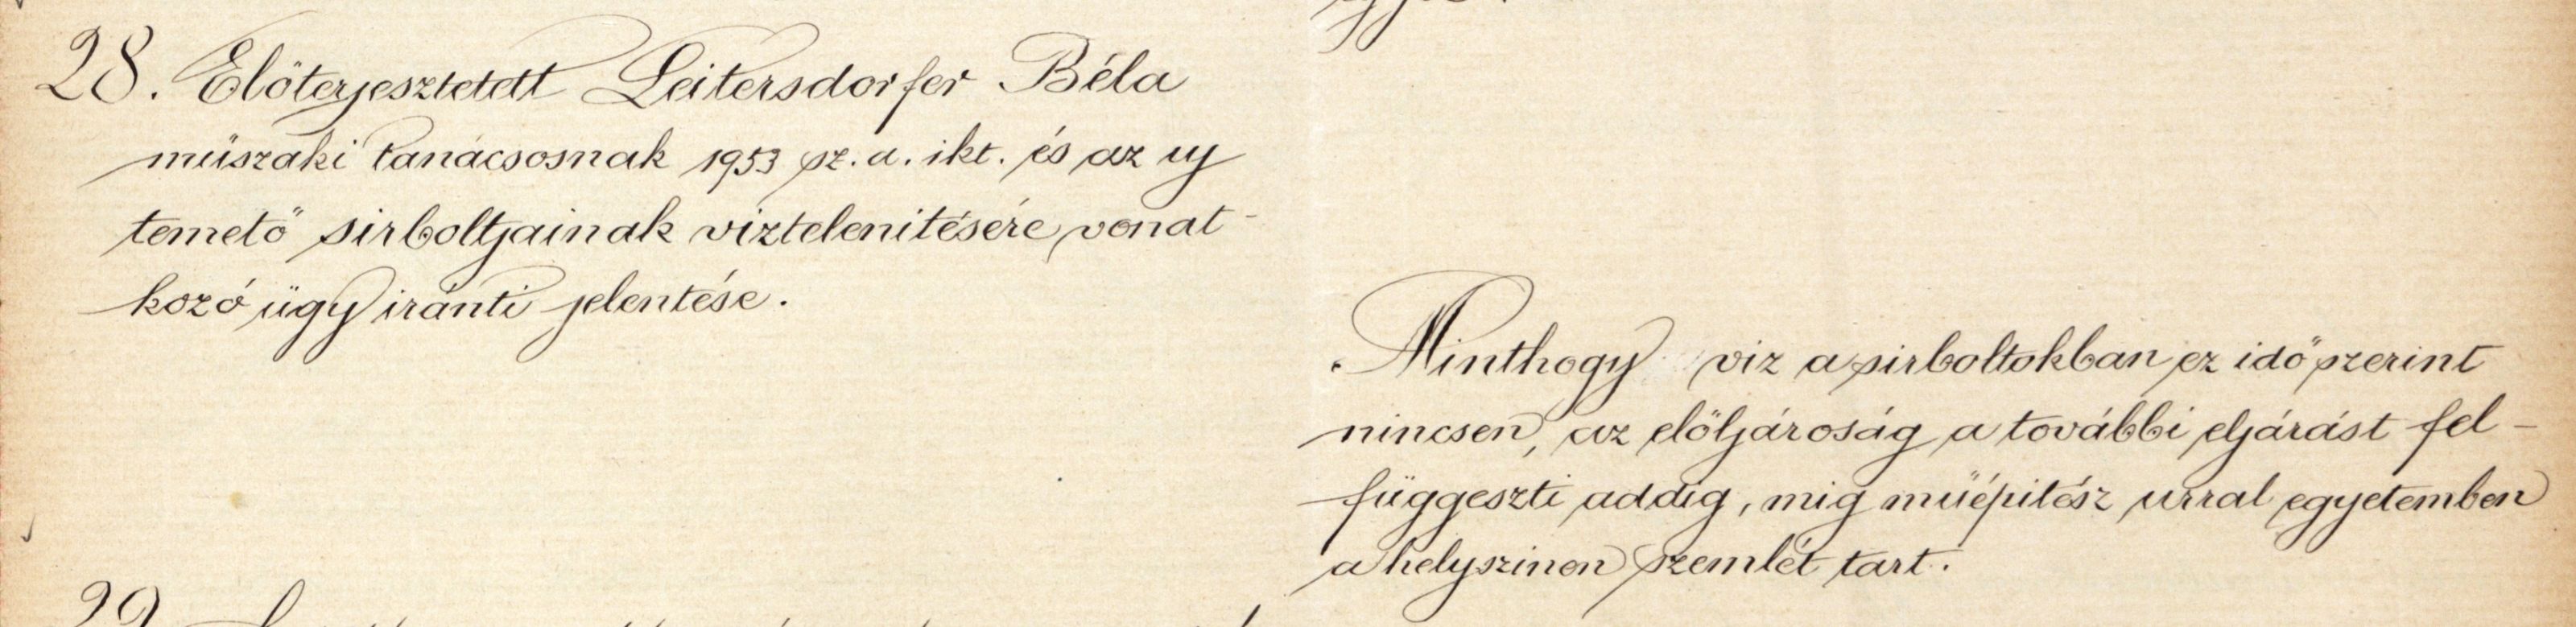 28. Előterjesztetett Leitersdorfer Béla
műszaki tanácsosnak 1953 sz. a. ikt. és az uj
temető sirboltjainak viztelenitésére vonat-
kozó ügy iránti jelentése.
Minthogy viz a sirboltokban ez idő szerint
nincsen, az előljároság a további eljárást fel-
függeszti addig, mig műépitész urral egyetemben
a helyszinen szemlét tart.
29.